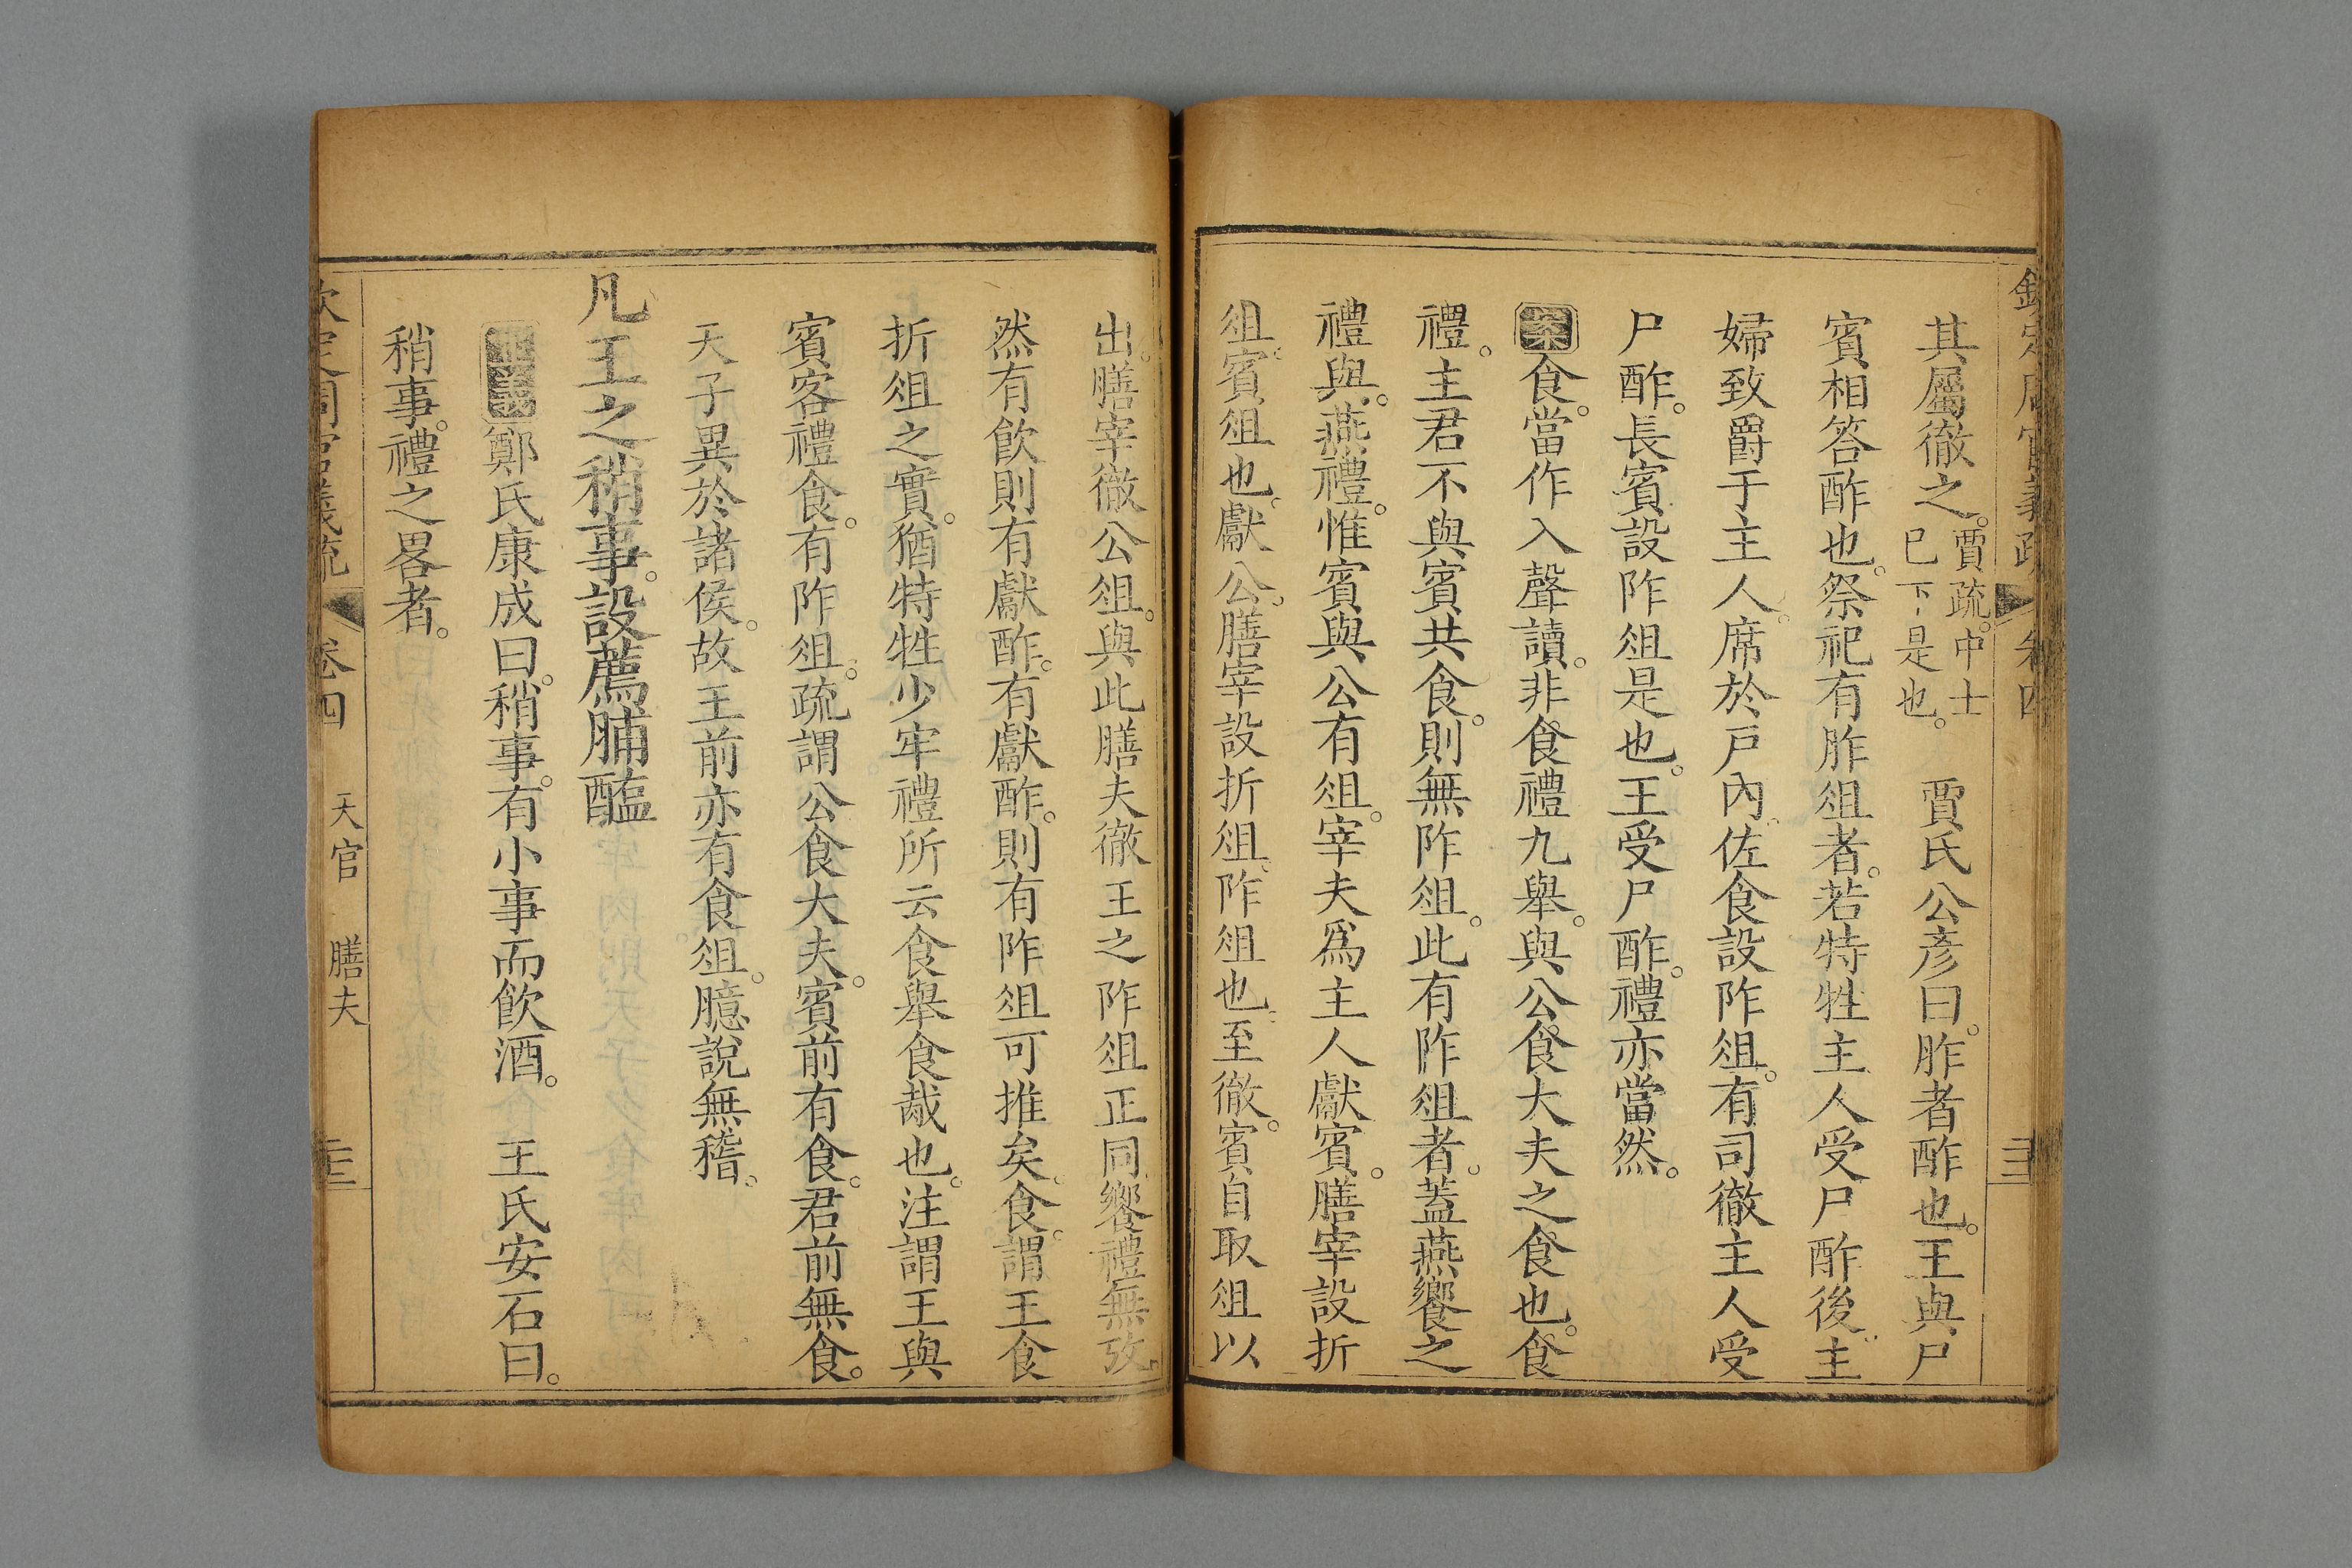 其屬徹之。賈疏。中士
巳下是也。 賈氏公彦曰。胙者酢也。王與尸
賓相答酢也。祭祀有胙俎者。若特牲主人受尸酢後。主
婦致爵于主人。席於戸內。佐食設阼俎。有司徹主人受
尸酢。長賓設阼俎是也。王受尸酢。禮亦當然。
案食。當作入聲讀。非食禮九舉。與公食大夫之食也。食
禮。主君不與賓共食。則無阼俎。此有阼俎者。蓋燕饗之
禮與。燕禮。惟賓與公有俎。宰夫爲主人獻賓。膳宰設折
俎。賓俎也。獻公。膳宰設折俎。阼俎也。至徹。賓自取俎以
出。膳宰徹公俎。與此膳夫徹王之阼俎正同。饗禮無攷。
然有飲則有獻酢。有獻酢。則有阼俎可推矣。食。謂王食
折俎之實。猶特牲少牢禮所云食舉食胾也。注謂王與
賓客禮食。有阼俎。疏謂公食大夫。賓前有食。君前無食。
天子異於諸侯。故王前亦有食俎。臆說無稽。
凡王之稍事。設薦脯醢
正義鄭氏康成曰。稍事。有小事而飲酒。 王氏安石曰。
稍事。禮之畧者。
欽定周官義疏 卷四 天官 膳夫